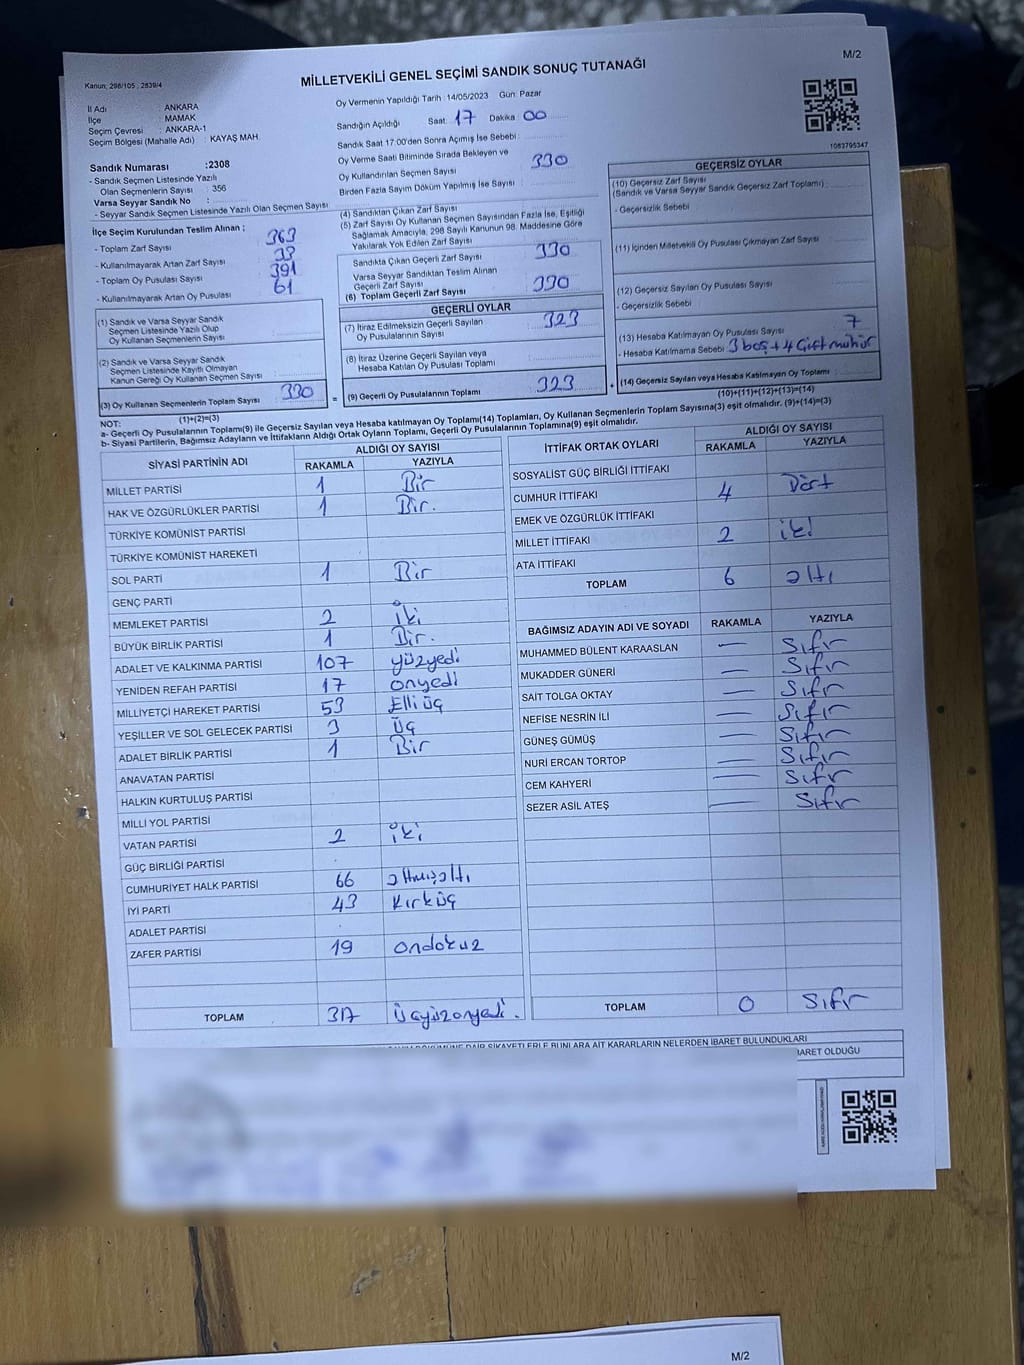 M/2
Kanun: 298/105 ; 2839/4
MİLLETVEKİLİ GENEL SEÇİMİ SANDIK SONUÇ TUTANAĞI
İl Adı : ANKARA
İlçe : MAMAK
Seçim Çevresi : ANKARA-1
Seçim Bölgesi (Mahalle Adı) : KAYAŞ MAH.
Sandık Numarası :2308
- Sandık Seçmen Listesinde Yazılı
Olan Seçmenlerin Sayısı : 356
Varsa Seyyar Sandık No :
- Seyyar Sandık Seçmen Listesinde Yazılı Olan Seçmen Sayısı :
Oy Vermenin Yapıldığı Tarih : 14/05/2023 Gün: Pazar
Sandığın Açıldığı Saat: 17 Dakika: 00
Sandık Saat 17:00'den Sonra Açımış İse Sebebi :
Oy Verme Saati Bitiminde Sırada Bekleyen ve
Oy Kullandırılan Seçmen Sayısı : 330
Birden Fazla Sayım Döküm Yapılmış İse Sayısı :
1083795347
İlçe Seçim Kurulundan Teslim Alınan ;
- Toplam Zarf Sayısı : 363
- Kullanılmayarak Artan Zarf Sayısı : 33
- Toplam Oy Pusulası Sayısı : 391
- Kullanılmayarak Artan Oy Pusulası : 61
(1) Sandık ve Varsa Seyyar Sandık
Seçmen Listesinde Yazılı Olup
Oy Kullanan Seçmenlerin Sayısı :
(2) Sandık ve Varsa Seyyar Sandık
Seçmen Listesinde Kayıtlı Olmayan
Kanun Gereği Oy Kullanan Seçmen Sayısı :
(3) Oy Kullanan Seçmenlerin Toplam Sayısı : 330
(1)+(2)=(3)
(4) Sandıktan Çıkan Zarf Sayısı :
(5) Zarf Sayısı Oy Kullanan Seçmen Sayısından Fazla İse, Eşitliği
Sağlamak Amacıyla, 298 Sayılı Kanunun 98. Maddesine Göre
Yakılarak Yok Edilen Zarf Sayısı :
Sandıkta Çıkan Geçerli Zarf Sayısı : 330
Varsa Seyyar Sandıktan Teslim Alınan
Geçerli Zarf Sayısı :
(6) Toplam Geçerli Zarf Sayısı : 330
GEÇERLİ OYLAR
(7) İtiraz Edilmeksizin Geçerli Sayılan
Oy Pusulalarının Sayısı : 323
(8) İtiraz Üzerine Geçerli Sayılan veya
Hesaba Katılan Oy Pusulası Toplamı :
(9) Geçerli Oy Pusulalarının Toplamı : 323
GEÇERSİZ OYLAR
(10) Geçersiz Zarf Sayısı
(Sandık ve Varsa Seyyar Sandık Geçersiz Zarf Toplamı) :
- Geçersizlik Sebebi :
(11) İçinden Milletvekili Oy Pusulası Çıkmayan Zarf Sayısı :
(12) Geçersiz Sayılan Oy Pusulası Sayısı :
- Geçersizlik Sebebi :
(13) Hesaba Katılmayan Oy Pusulası Sayısı : 7
- Hesaba Katılmama Sebebi : 3 boş + 4 Çift mühür
(14) Geçersiz Sayılan veya Hesaba Katılmayan Oy Toplamı :
(10)+(11)+(12)+(13)=(14)
NOT:
a- Geçerli Oy Pusulalarının Toplamı(9) ile Geçersiz Sayılan veya Hesaba katılmayan Oy Toplamı(14) Toplamları, Oy Kullanan Seçmenlerin Toplam Sayısına(3) eşit olmalıdır. (9)+(14)=(3)
b- Siyasi Partilerin, Bağımsız Adayların ve İttifakların Aldığı Ortak Oyların Toplamı, Geçerli Oy Pusulalarının Toplamına(9) eşit olmalıdır.
SİYASİ PARTİNİN ADI ALDIĞI OY SAYISI
RAKAMLA YAZIYLA
MİLLET PARTİSİ 1 Bir
HAK VE ÖZGÜRLÜKLER PARTİSİ 1 Bir.
TÜRKİYE KOMÜNİST PARTİSİ
TÜRKİYE KOMÜNİST HAREKETİ
SOL PARTİ 1 Bir
GENÇ PARTİ
MEMLEKET PARTİSİ 2 iki
BÜYÜK BİRLİK PARTİSİ 1 Bir.
ADALET VE KALKINMA PARTİSİ 107 yüzyedi
YENİDEN REFAH PARTİSİ 17 onyedi
MİLLİYETÇİ HAREKET PARTİSİ 53 Elli üç
YEŞİLLER VE SOL GELECEK PARTİSİ 3 üç
ADALET BİRLİK PARTİSİ 1 Bir
ANAVATAN PARTİSİ
HALKIN KURTULUŞ PARTİSİ
MİLLİ YOL PARTİSİ
VATAN PARTİSİ 2 iki
GÜÇ BİRLİĞİ PARTİSİ
CUMHURİYET HALK PARTİSİ 66 altmışaltı
İYİ PARTİ 43 kırküç
ADALET PARTİSİ
ZAFER PARTİSİ 19 ondokuz
TOPLAM 317 üçyüzonyedi.
İTTİFAK ORTAK OYLARI ALDIĞI OY SAYISI
RAKAMLA YAZIYLA
SOSYALİST GÜÇ BİRLİĞİ İTTİFAKI
CUMHUR İTTİFAKI 4 Dört
EMEK VE ÖZGÜRLÜK İTTİFAKI
MİLLET İTTİFAKI 2 iki
ATA İTTİFAKI
TOPLAM 6 altı
BAĞIMSIZ ADAYIN ADI VE SOYADI RAKAMLA YAZIYLA
MUHAMMED BÜLENT KARAASLAN — Sıfır
MUKADDER GÜNERİ — Sıfır
SAİT TOLGA OKTAY — Sıfır
NEFİSE NESRİN İLİ — Sıfır
GÜNEŞ GÜMÜŞ — Sıfır
NURİ ERCAN TORTOP — Sıfır
CEM KAHYERİ — Sıfır
SEZER ASİL ATEŞ — Sıfır
TOPLAM 0 Sıfır
ŞİKAYETLERLE BUNLARA AİT KARARLARIN NELERDEN İBARET BULUNDUKLARI
İBARET OLDUĞU
M/2